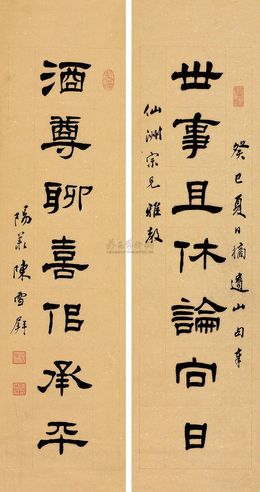 癸巳夏日摘遺山句奉
世事且休論向日
仙洲宗兄雅教
酒尊聊喜佀承平
陽羨陳雪屏